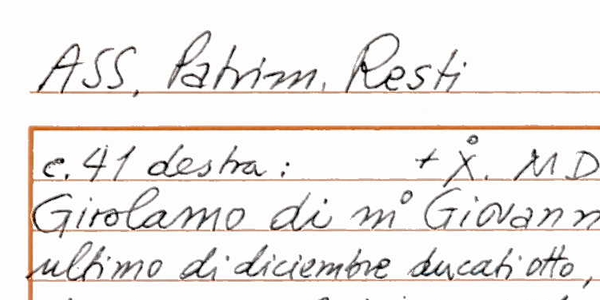 ASS, Patrim. Resti
c. 41 destra: + X̊. MD
Girolamo di m° Giovann
ultimo di diciembre ducati otto,